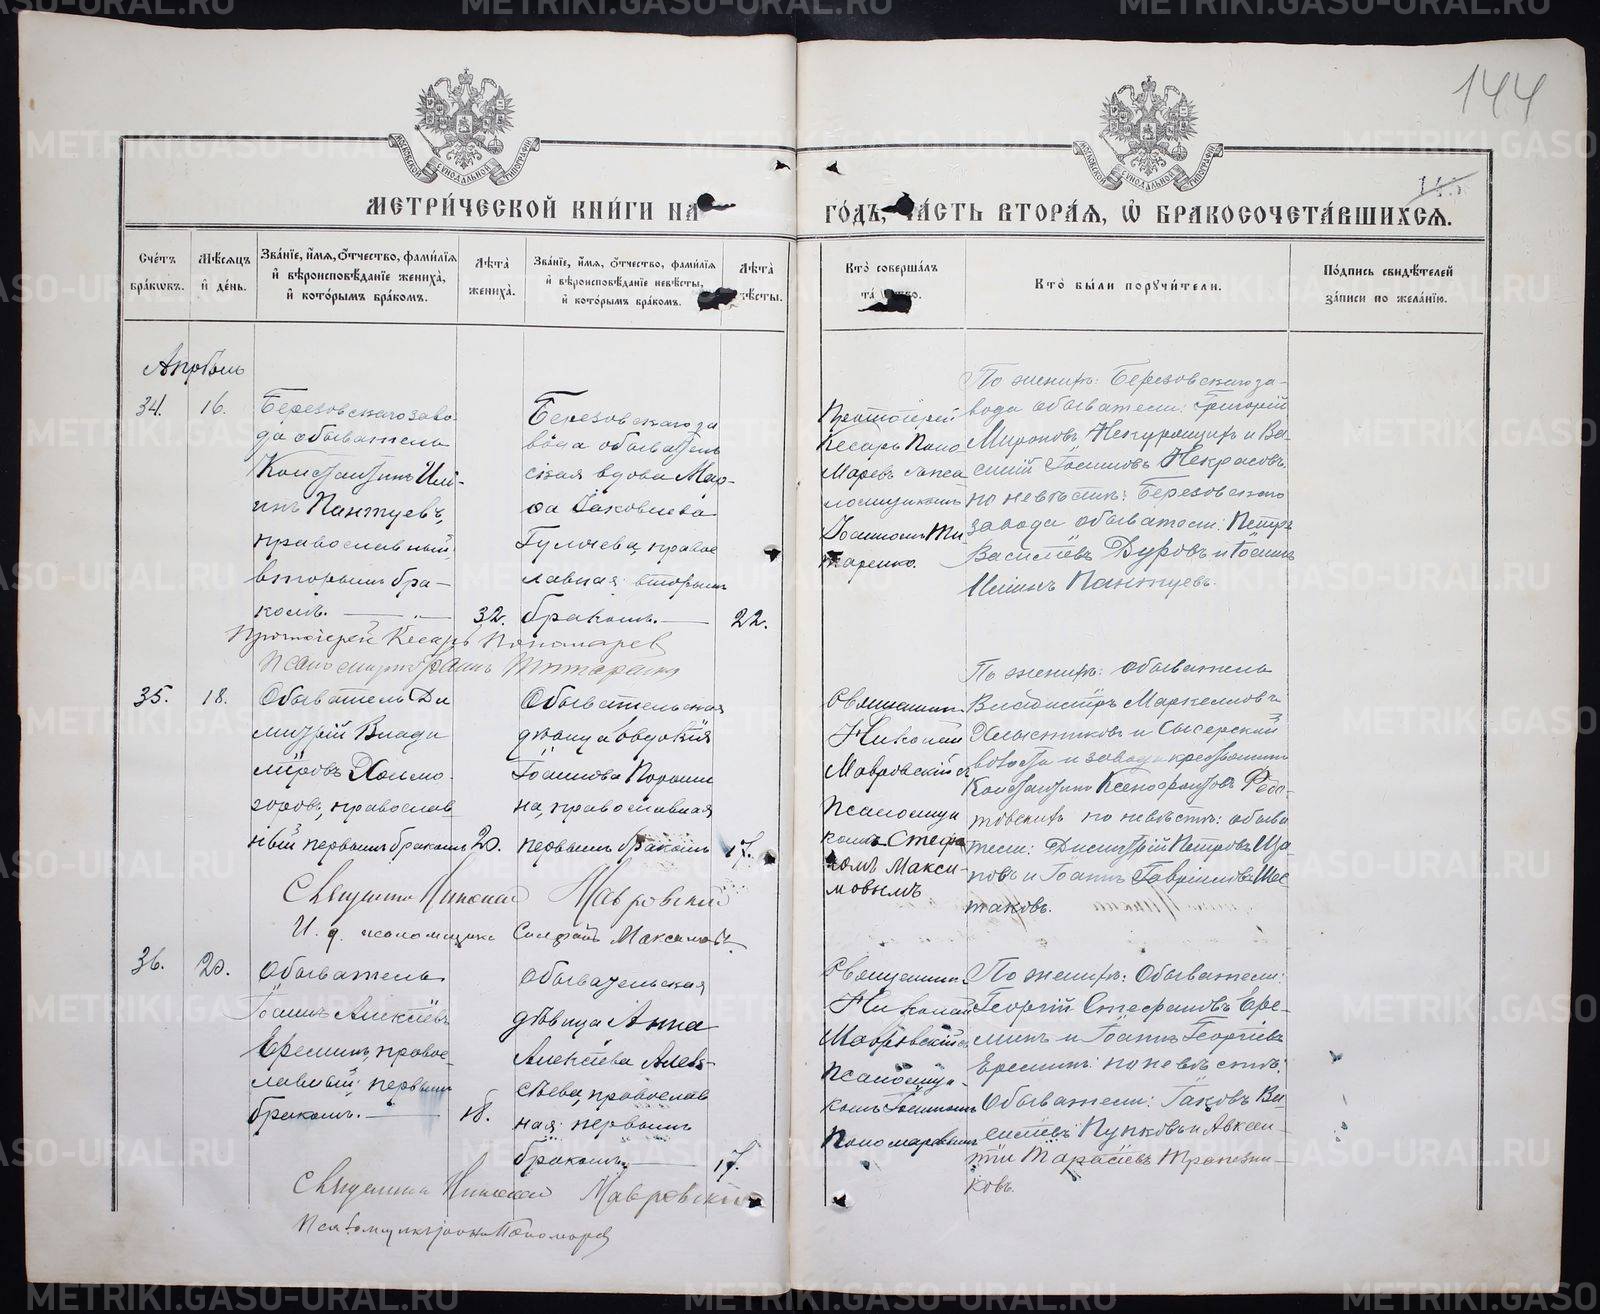 144
145.
МОСКОВСКОЙ СѴНОДАЛЬНОЙ ТИПОГРАФІИ
МОСКОВСКОЙ СѴНОДАЛЬНОЙ ТИПОГРАФІИ
МЕТРИ́ЧЕСКОЙ КНИ́ГИ НА
ГО́ДЪ, ЧА́СТЬ ВТОРА́Я, Ѡ БРАКОСОЧЕТА́ВШИХСЯ.
Сче́тъ бра́кѡвъ.
Мѣ́сяцъ й де́нь.
Зва́нїе, и́мя, ѻ́тчество, фами́лїя й вѣроисповѣ́данїе жениха̀, й кото́рымъ бра́комъ.
Лѣ́та жениха̀.
Зва́нїе, и́мя, ѻ́тчество, фами́лїя й вѣроисповѣ́данїе невѣ́сты, й кото́рымъ бра́комъ.
Лѣ́та
Кто̀ соверша́лъ
Кто̀ бы́ли порꙋчи́тели.
По́дпись свидѣ́телей за́писи по жела́нїю.
Апрѣль
34.
16.
Березовскаго заво-
да обыватель
Константинъ Иль-
инъ Пантуевъ,
православный
вторымъ бра-
комъ.
32.
Березовскаго за
вода обыватель
ская вдова Мар-
ѳа Іаковлева
Гуляева, правос
лавная: вторымъ
бракомъ.
22.
Протоіерей
Кесарь Поно
маревъ съ пса
ломщикомъ
Іоанномъ Ти
таренко.
По женихѣ: Березовскаго за-
вода обыватели: Григорій
Мироновъ и Ва-
силій Іоанновъ Некрасовъ.
по невѣстѣ: Березовскаго
завода обыватели: Петръ
Василіевъ Дуровъ и Іоаннъ
Ильинъ Пантуевъ.
Протоіерей Кесарь Пономарев
Псаломщикъ Іоаннъ Титаренко
35.
18.
Обыватель Ди
митрій Влади
міровъ Холмо-
горовъ, православ
ный первымъ бракомъ
20.
Обывательская
дѣвица Евдокія
Іоаннова
на, православная
первымъ бракомъ
17.
Священник
Николай
Мавровскій съ
Псаломщи
комъ Стефа
номъ Макси-
мовымъ
По женихѣ: обыватель
Владиміръ Маркелловъ
и Сысерской
волости и завода крестьянинъ
Константинъ Ксенофонтовъ
по невѣстѣ: обыва
тели: Димитрій Петровъ
новъ и Іоаннъ Гавріиловъ Шес-
таковъ.
Священникъ Николай Мавровский
И. д. псаломщика Стефанъ Максимовъ
36.
20.
Обыватель
Іоаннъ Алексѣевъ
Ереминъ, правос-
лавный: первымъ
бракомъ.
18.
Обывательская
дѣвица Анна
Алексѣева Алек-
сѣева, православ
ная: первымъ
бракомъ.
17.
Священник
Николай
Мавровскій съ
Псаломщи-
комъ Іоанномъ
Пономаревымъ
По женихѣ: Обыватели:
Георгій Стефановъ Ере-
минъ и Іоаннъ Георгіевъ
Ереминъ: по невѣстѣ:
Обыватели: Іаковъ Ва-
силіевъ Пупковъ и Авксен-
тій Тарасіевъ Трапезни-
ковъ.
Священникъ Николай Мавровский
Псаломщикъ Іоаннъ Пономарев
METRIKI.GASO-URAL.RU